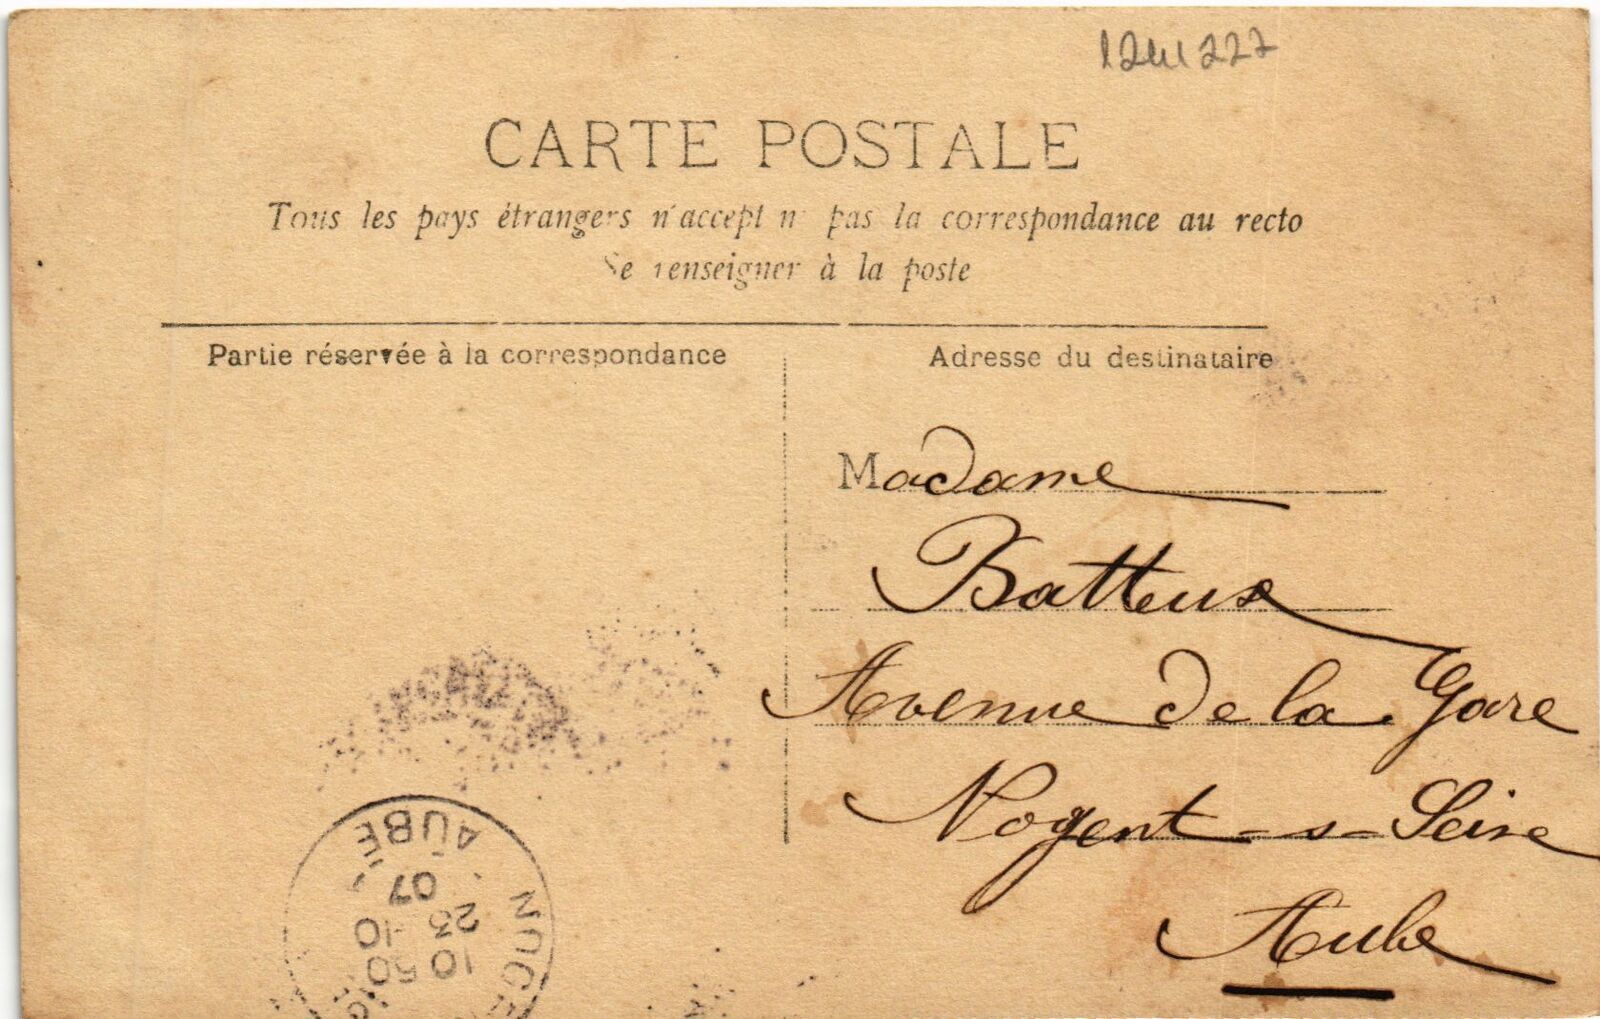 1241227
CARTE POSTALE
Tous les pays étrangers n'accept n pas la correspondance au recto
Se renseigner à la poste
Partie réservée à la correspondance
Adresse du destinataire
Madame
Batteux
Avenue de la Gare
Nogent-s-Seine
Aube
NOGE
AUBE
10 50
23 -10
07